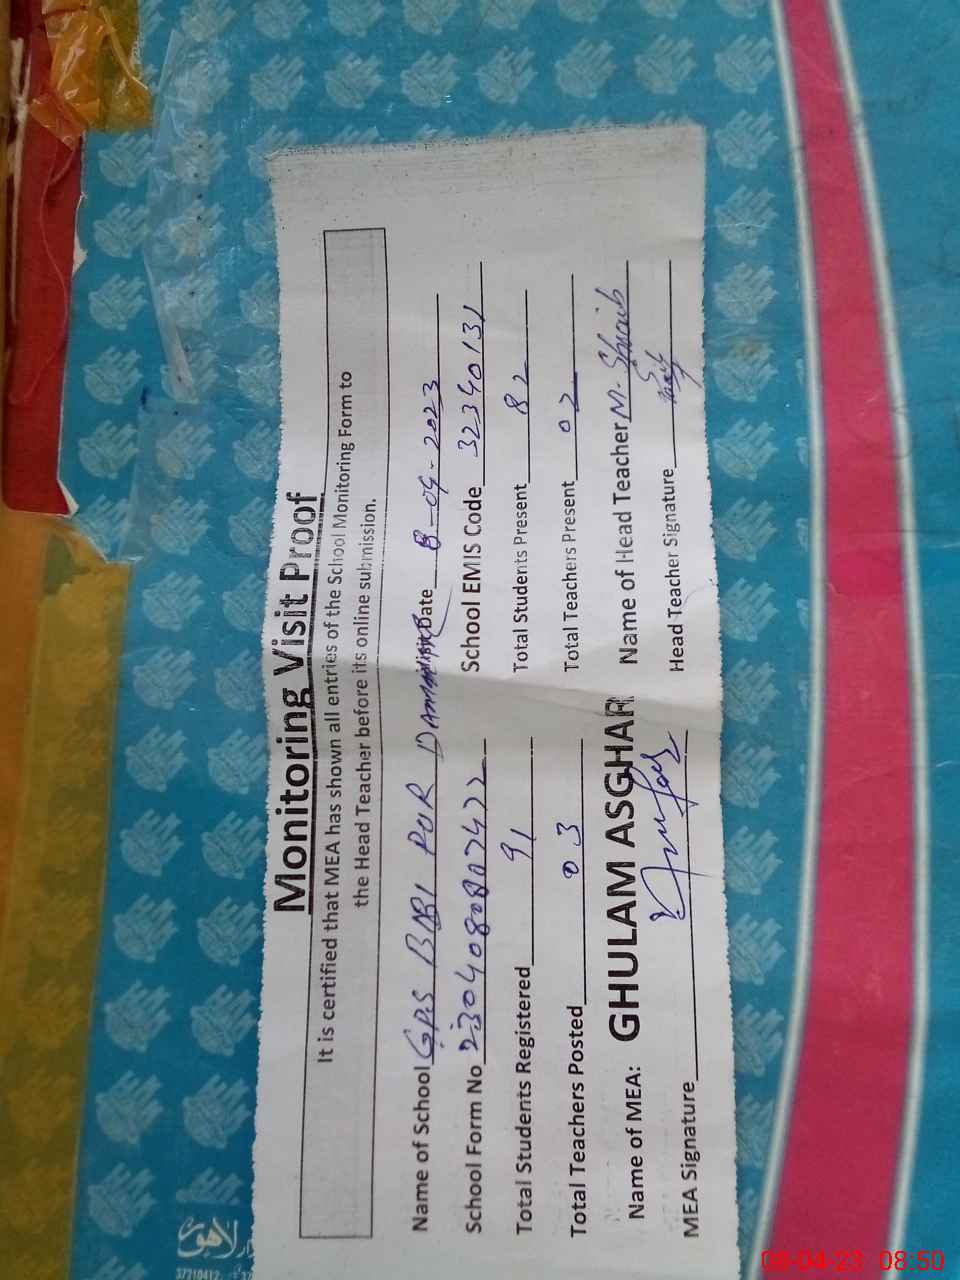 Monitoring Visit Proof
It is certified that MEA has shown all entries of the School Monitoring Form to
the Head Teacher before its online submission.
Name of School GPS BARI PUR Visit Date 8-04-2023
School Form No 230408087422 School EMIS Code 32340131
Total Students Registered 91 Total Students Present 82
Total Teachers Posted 03 Total Teachers Present 02
Name of MEA: GHULAM ASGHAR Name of Head Teacher M. Shoaib
MEA Signature Head Teacher Signature
لاہور
37710412
08-04-23 08:50